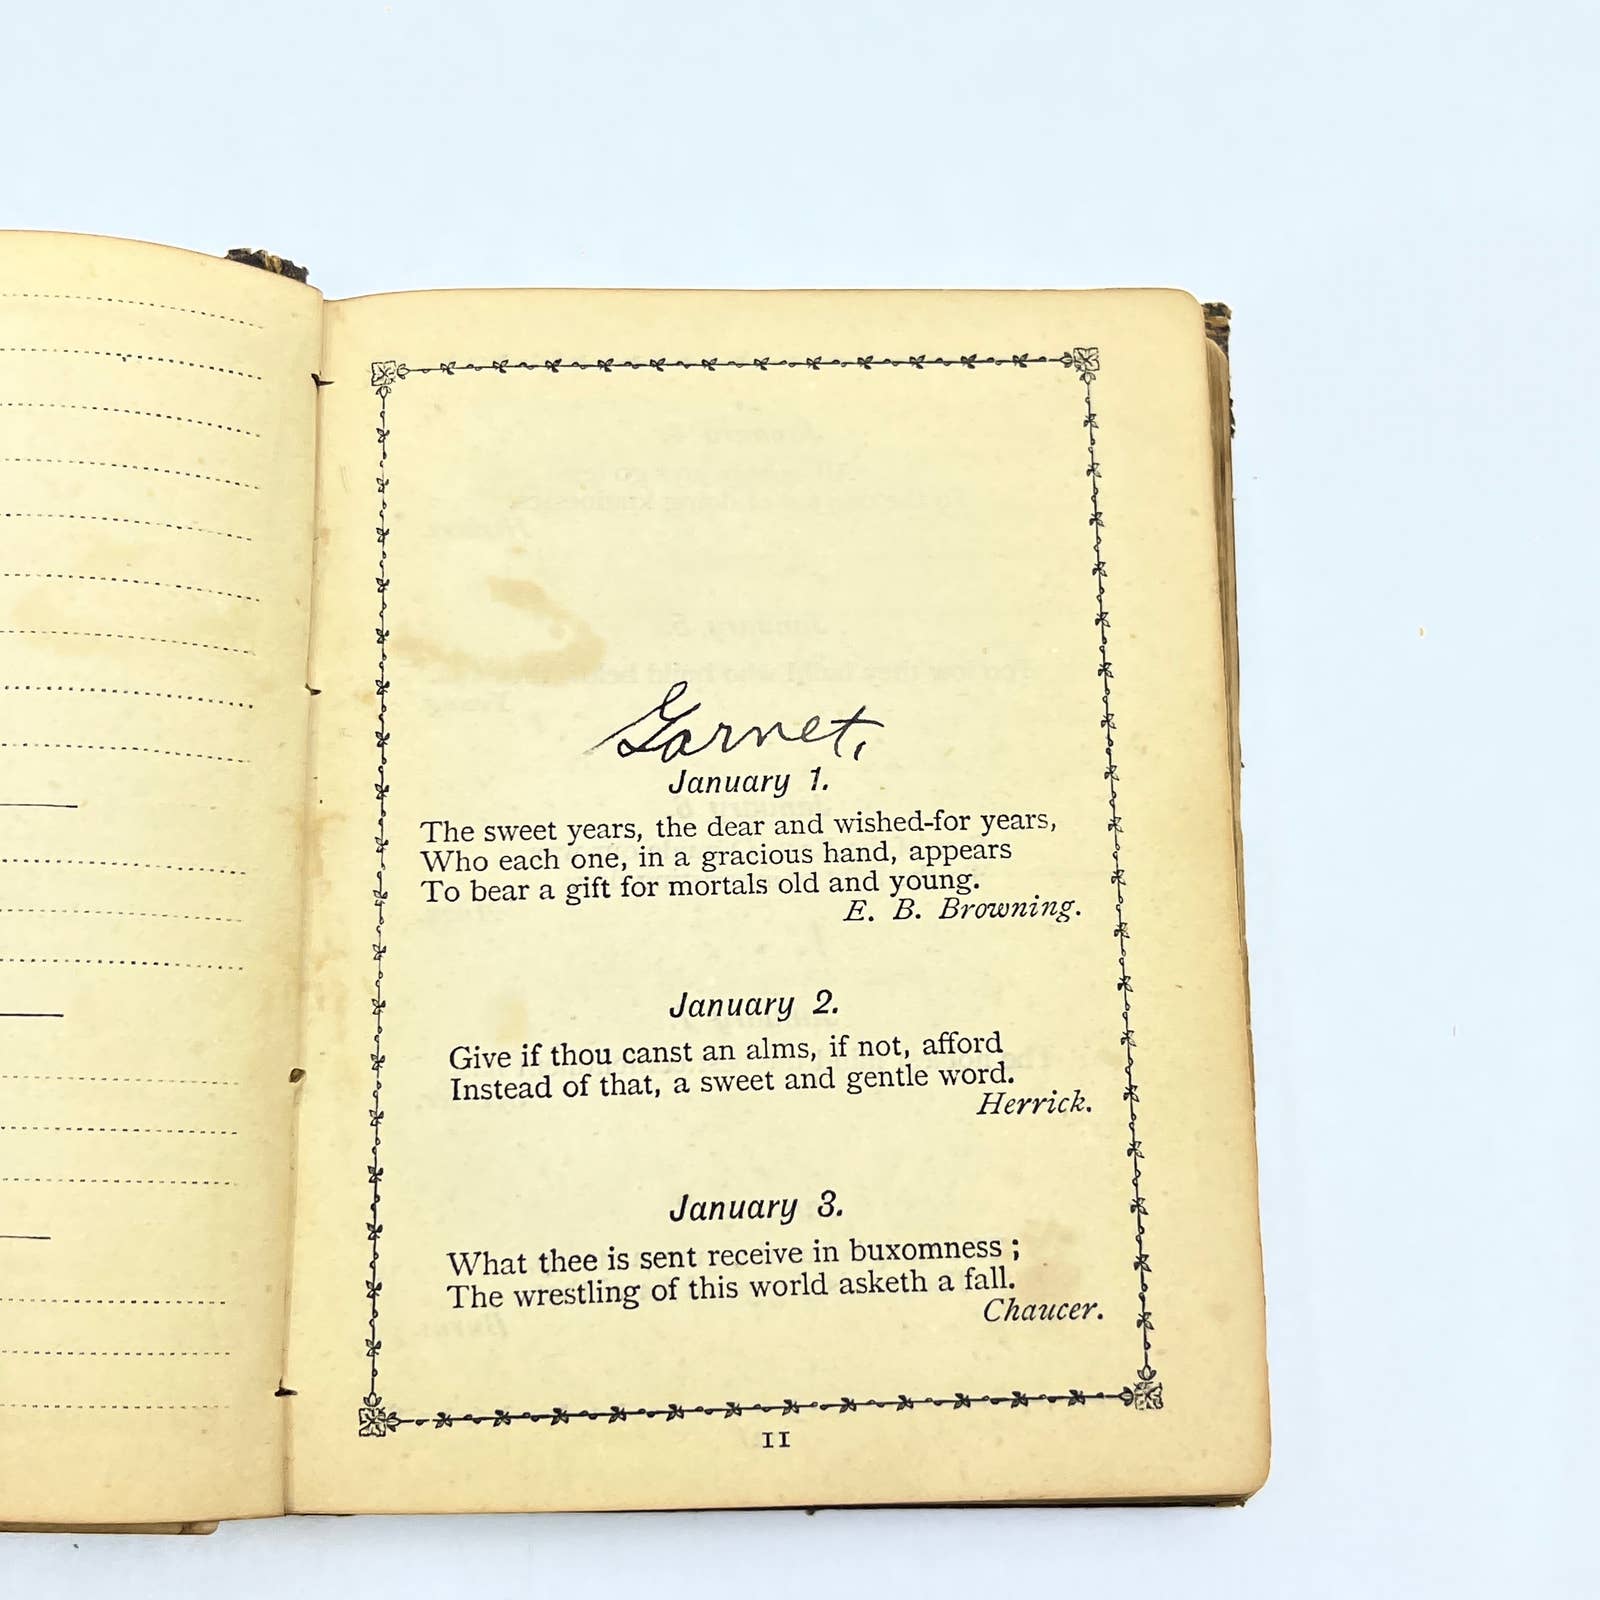 Garnet,
January 1.
The sweet years, the dear and wished-for years,
Who each one, in a gracious hand, appears
To bear a gift for mortals old and young.
E. B. Browning.
January 2.
Give if thou canst an alms, if not, afford
Instead of that, a sweet and gentle word.
Herrick.
January 3.
What thee is sent receive in buxomness ;
The wrestling of this world asketh a fall.
Chaucer.
11